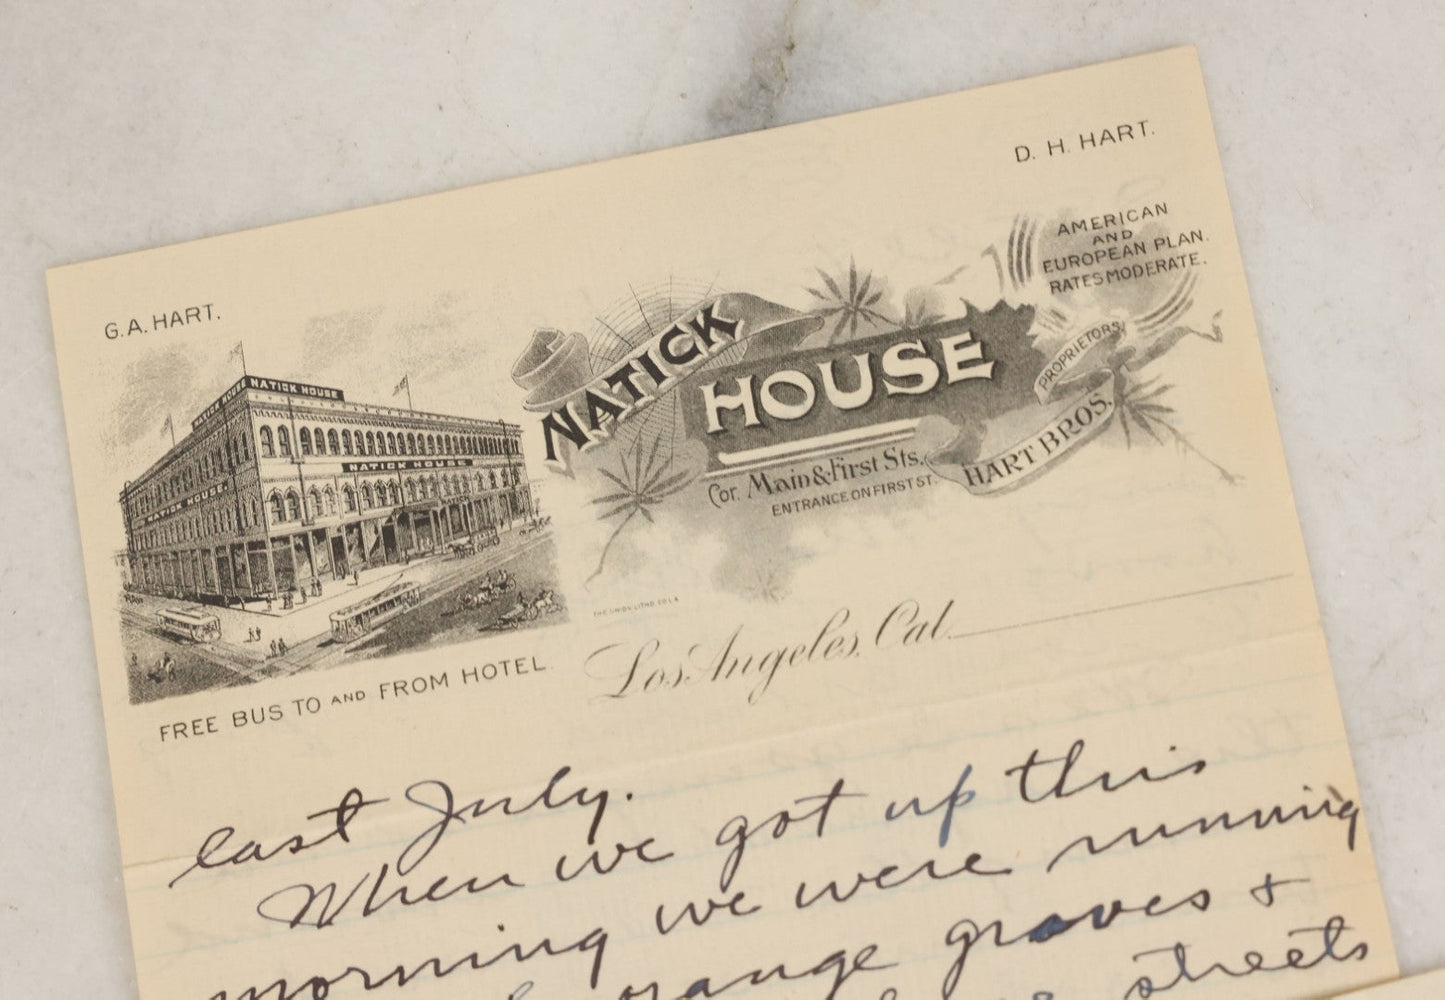 D. H. HART.
G. A. HART.
AMERICAN
AND
EUROPEAN PLAN.
RATES MODERATE.
NATICK HOUSE
NATICK HOUSE
NATICK HOUSE
NATICK HOUSE
NATICK
HOUSE
PROPRIETORS,
HART BROS.
Cor. Main & First Sts.
ENTRANCE ON FIRST ST.
THE UNION LITHO. CO. L.A.
FREE BUS TO AND FROM HOTEL
Los Angeles, Cal.
last July.
When we got up this
morning we were running
orange groves &
streets